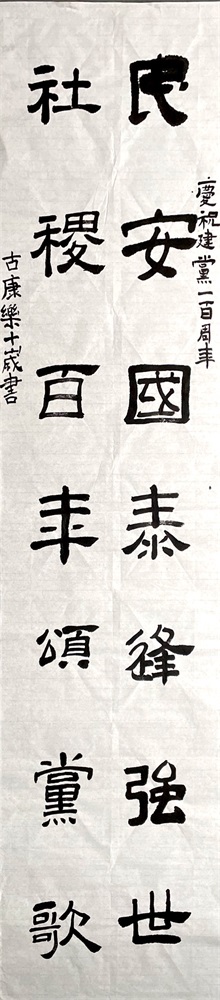 慶祝建黨一百周年
民安國泰逢強世
社稷百年頌黨歌
古康樂十歲書